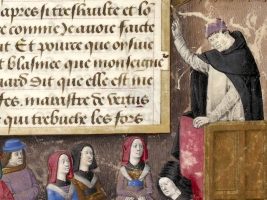 apres si treshaulte et lo
re comme J'e auoie faicte
ut Et pource que on sue
t blasmee que monseigne
uard dit que elle est me
tes, maistre de vertus
qui trebuche les fors